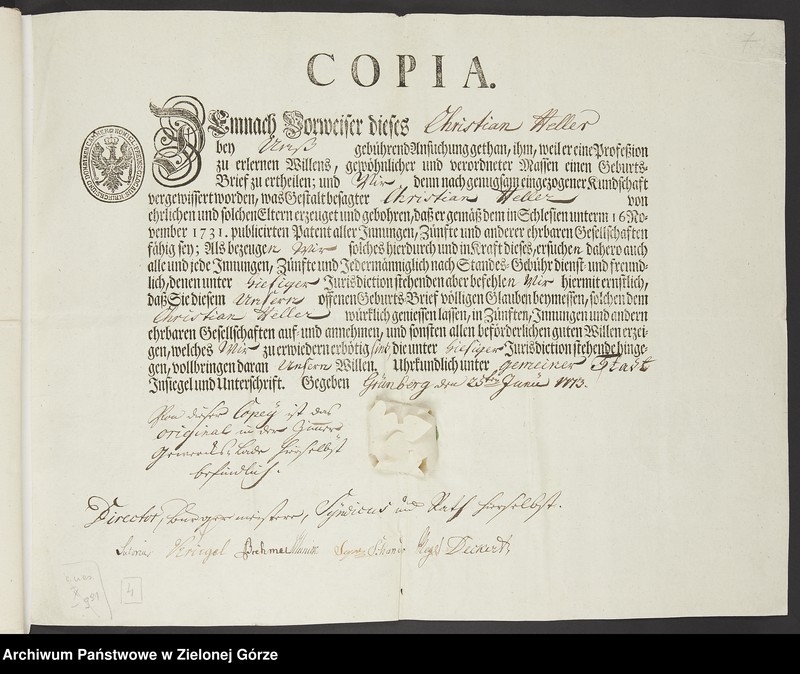 COPIA.
DEmnach Vorweiser dieses Christian Heller
bey Unß gebührend Ansuchung gethan, ihm, weil er eine Profeßion
zu erlernen Willens, gewöhnlicher und verordneter Massen einen Geburts-
Brief zu ertheilen; und Wir denn nach genugsam eingezogener Kundschaft
vergewissert worden, was Gestalt besagter Christian Heller von
ehrlichen und solchen Eltern erzeuget und gebohren, daß er gemäß dem in Schlesien unterm 16 No-
vember 1731. publicirten Patent aller Innungen, Zünfte und anderer ehrbaren Gesellschaften
fähig sey; Als bezeugen Wir solches hierdurch und in Kraft dieses, ersuchen dahero auch
alle und jede Innungen, Zünfte und Jedermänniglich nach Standes-Gebühr dienst- und freund-
lich, denen unter hiesiger Jurisdiction stehenden aber befehlen Wir hiermit ernstlich,
daß Sie diesem Unsern offenen Geburts-Brief völligen Glauben beymessen, solchen dem
Christian Heller würklich geniessen lassen, in Zünften, Innungen und andern
ehrbaren Gesellschaften auf- und annehmen, und sonsten allen beförderlichen guten Willen erzei-
gen, welches Wir zu erwiedern erbötig sind, die unter hiesiger Jurisdiction stehende hinge-
gen, vollbringen daran Unsern Willen. Uhrkundlich unter gemeiner Stadt
Insiegel und Unterschrift. Gegeben Grünberg den 25ten Junii 1773.
Von dieser Copey ist das
original in der
Gewercks-Lade hierselbst
befindlich.
Director, Bürgermeistere, Syndicus und Rath hierselbst.
Kriegel Brehmer Deckert
4
Archiwum Państwowe w Zielonej Górze